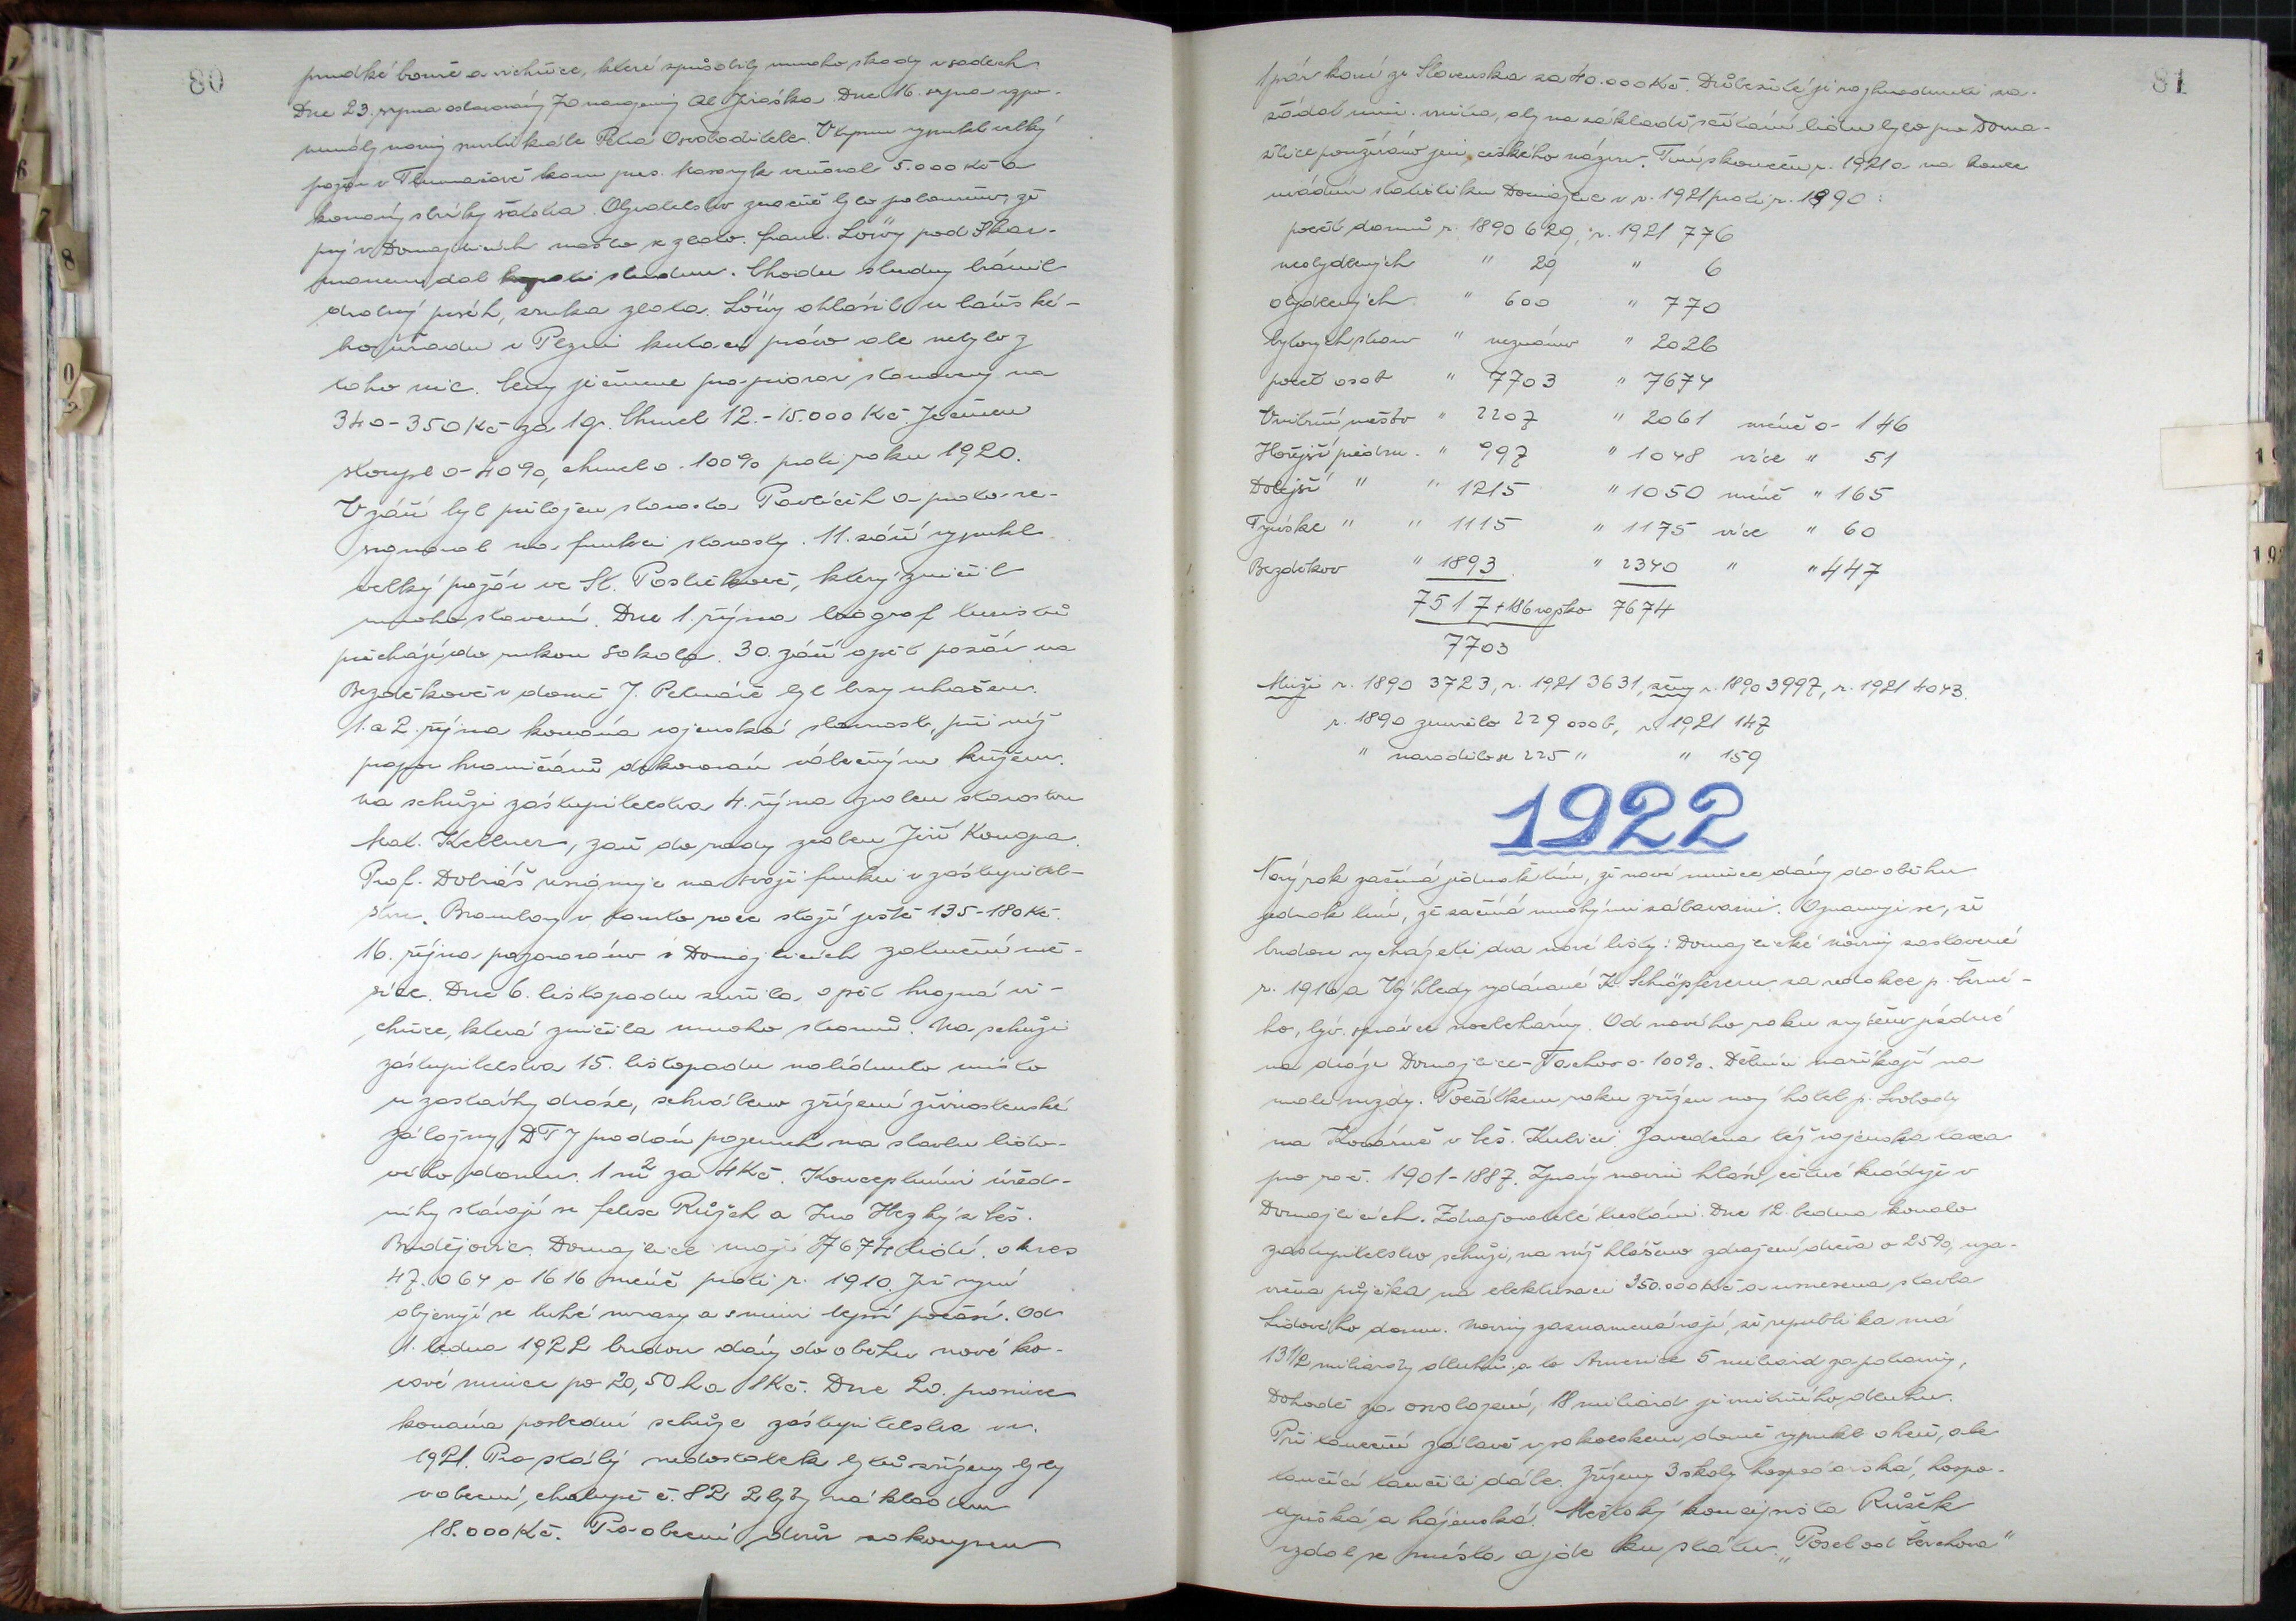 80
prudké bouře a vichřice, které způsobily mnoho škody v sadech
Dne 23. srpna oslavovány 70 narozeniny Al Jiráska. Dne 16. srpna vzpo-
mněly noviny smrti krále Petra Osvoboditele. V srpnu vypukl velký
požár v Tlumačově kam pres. Masaryk věnoval 5.000 Kč a
konány sbírky šatstva. Obyvatelstvo značně bylo pobouřeno, že
prý v Domažlicích našlo se zlato. Frant. Löwy pod Škar-
manem dal kopati studnu. Chodu studny bránil
drobný písek, snuka zlata. Löwy ohlásil u báňské-
ho úřadu v Plzni kutací právo ale nebylo z
toho nic. Ceny ječmene pro pivovar stanoveny na
340-350 Kč za 1q. Chmel 12.-15.000 Kč. Ječmen
stoupl o 40%, chmel o 100% proti roku 1920.
V září byl přeložen starosta Pavlíček a proto re-
signoval na funkci starosty. 11. září vypukl
velký požár ve St. Postřekově, který zničil
mnoho stavení. Dne 1. října biograf turistů
přichází do rukou Sokola. 30. září opět požár na
Bezděkově v domě J. Pelnáře byl brzy uhašen.
1. a 2. října konána vojenská slavnost, při níž
prapor hraničářů dekorován válečným křížem.
na schůzi zastupitelstva 4. října zvolen starostou
Mat. Kellner, zaň do rady zvolen Jiří Konopa.
Prof. Dobiáš resignuje na svoji funkci v zastupitel-
stvu. Brambory v tomto roce stojí ještě 135-180 Kč.
16. října pozorováno v Domažlicích zatmění mě-
síce. Dne 6. listopadu zuřila opět hrozná vi-
chřice, která zničila mnoho stromů. Na schůzi
zastupitelstva 15. listopadu nabídnuto místo
u zastávky dráze, schváleno zřízení živnostenské
záložny, DTJ prodán pozemek na stavbu lido-
vého domu. 1 m² za 4 Kč. Konceptními úřed-
níky stávají se Felix Růžek a Ina Hezký z Čes.
Budějovic. Domažlice mají 7674 lidí. okres
47.064 o 1616 méně proti r. 1910. Již nyní
objevují se tuhé mrazy a s nimi lepší počasí. Od
1. ledna 1922 budou dány do oběhu nové ko-
vové mince po 20, 50 h a 1 Kč. Dne 20. prosince
konána poslední schůze zastupitelstva v r.
1921. Pro stálý nedostatek bytů zřízeny byly
v obecní chalupě č. 82 2 byty nákladem
18.000 Kč. Pro obecní dvůr zakoupen
81
1 pár koní ze Slovenska za 40.000 Kč. Důležité je rozhodnutí na
žádal min. vnitra, aby na základě sčítání lidu bylo pro Doma-
žlice používáno jen českého názvu. Tím skončen r. 1921 a na konec
uvádím statistiku Domažlic v r. 1921 proti r. 1890:
počet domů r. 1890 629, r. 1921 776
neobydlených " 29 " 6
obydlených " 600 " 770
bytových stran " neznámo " 2026
počet osob " 7703 " 7674
Vnitřní město " 2207 " 2061 méně o 146
Hořejší předm. " 997 " 1048 více " 51
Dolejší " " 1215 " 1050 méně " 165
Týnské " " 1115 " 1175 více " 60
Bezděkov " 1893 " 2340 " " 447
7517 + 186 vojsko 7674
7703
Muži r. 1890 3723, r. 1921 3631, ženy r. 1890 3997, r. 1921 4043.
r. 1890 zemřelo 229 osob, r. 1921 147
" narodilo se 225 " " 159
1922
Nový rok začíná jednak tím, že nové mince dány do oběhu
jednak tím, že začíná mnohými zábavami. Oznamuje se, že
budou vycházeti dva nové listy: Domažlické noviny zastavené
r. 1916 a Výhledy vydávané K. Schöpferem za redakce p. Černé-
ho, býv. správce nocleharny. Od nového roku zvýšeno jízdné
na dráze Domažlice-Tachov o 100%. Dělníci naříkají na
malé mzdy. Počátkem roku zřízen nový hotel p. Svobody
na Kovárně v Čes. Kubici. Zavedena též vojenská taxa
pro roč. 1901-1887. Zprávy novin hlásí četné krádeže v
Domažlicích. Zdražovatelé trestáni. Dne 12. ledna konalo
zastupitelstvo schůzi, na níž hlášeno zdražení dříví o 25%, uza-
vřena půjčka na elektrisaci 350.000 Kč a usnesena stavba
Lidového domu. Noviny zaznamenávají, že republika má
13 1/2 miliardy dluhů a to Americe 5 miliard za potraviny,
Dohodě za osvobození, 18 miliard je vnitřního dluhu.
Při taneční zábavě v sokolském domě vypukl oheň, ale
tančící tančili dále. Zřízeny 3 školy hospodářská, hospo-
dyňská a hájenská. Městský koncipista Růžek
vzdal se místa a jde ku státu. "Posel od Čerchova"